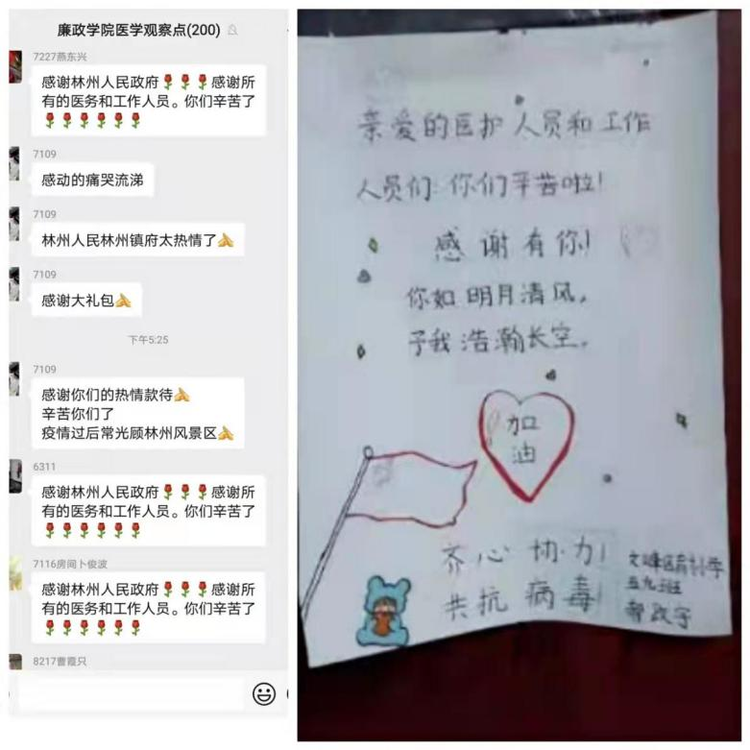 廉政学院医学观察点(200)
7227燕东兴
感谢林州人民政府🌹🌹🌹感谢所
有的医务和工作人员。你们辛苦了
🌹🌹🌹🌹🌹🌹
7109
感动的痛哭流涕
7109
林州人民林州镇府太热情了🙏
7109
感谢大礼包🙏
下午5:25
7109
感谢你们的热情款待🙏
辛苦你们了
疫情过后常光顾林州风景区🙏
6311
感谢林州人民政府🌹🌹🌹感谢所
有的医务和工作人员。你们辛苦了
🌹🌹🌹🌹🌹🌹
7116房间卜俊波
感谢林州人民政府🌹🌹🌹感谢所
有的医务和工作人员。你们辛苦了
🌹🌹🌹🌹🌹🌹
8217曹霞只
亲爱的医护人员和工作
人员们:你们辛苦啦!
感谢有你!
你如明月清风,
予我浩瀚长空。
加
油
齐心协力!
共抗病毒!
文峰区
五九班